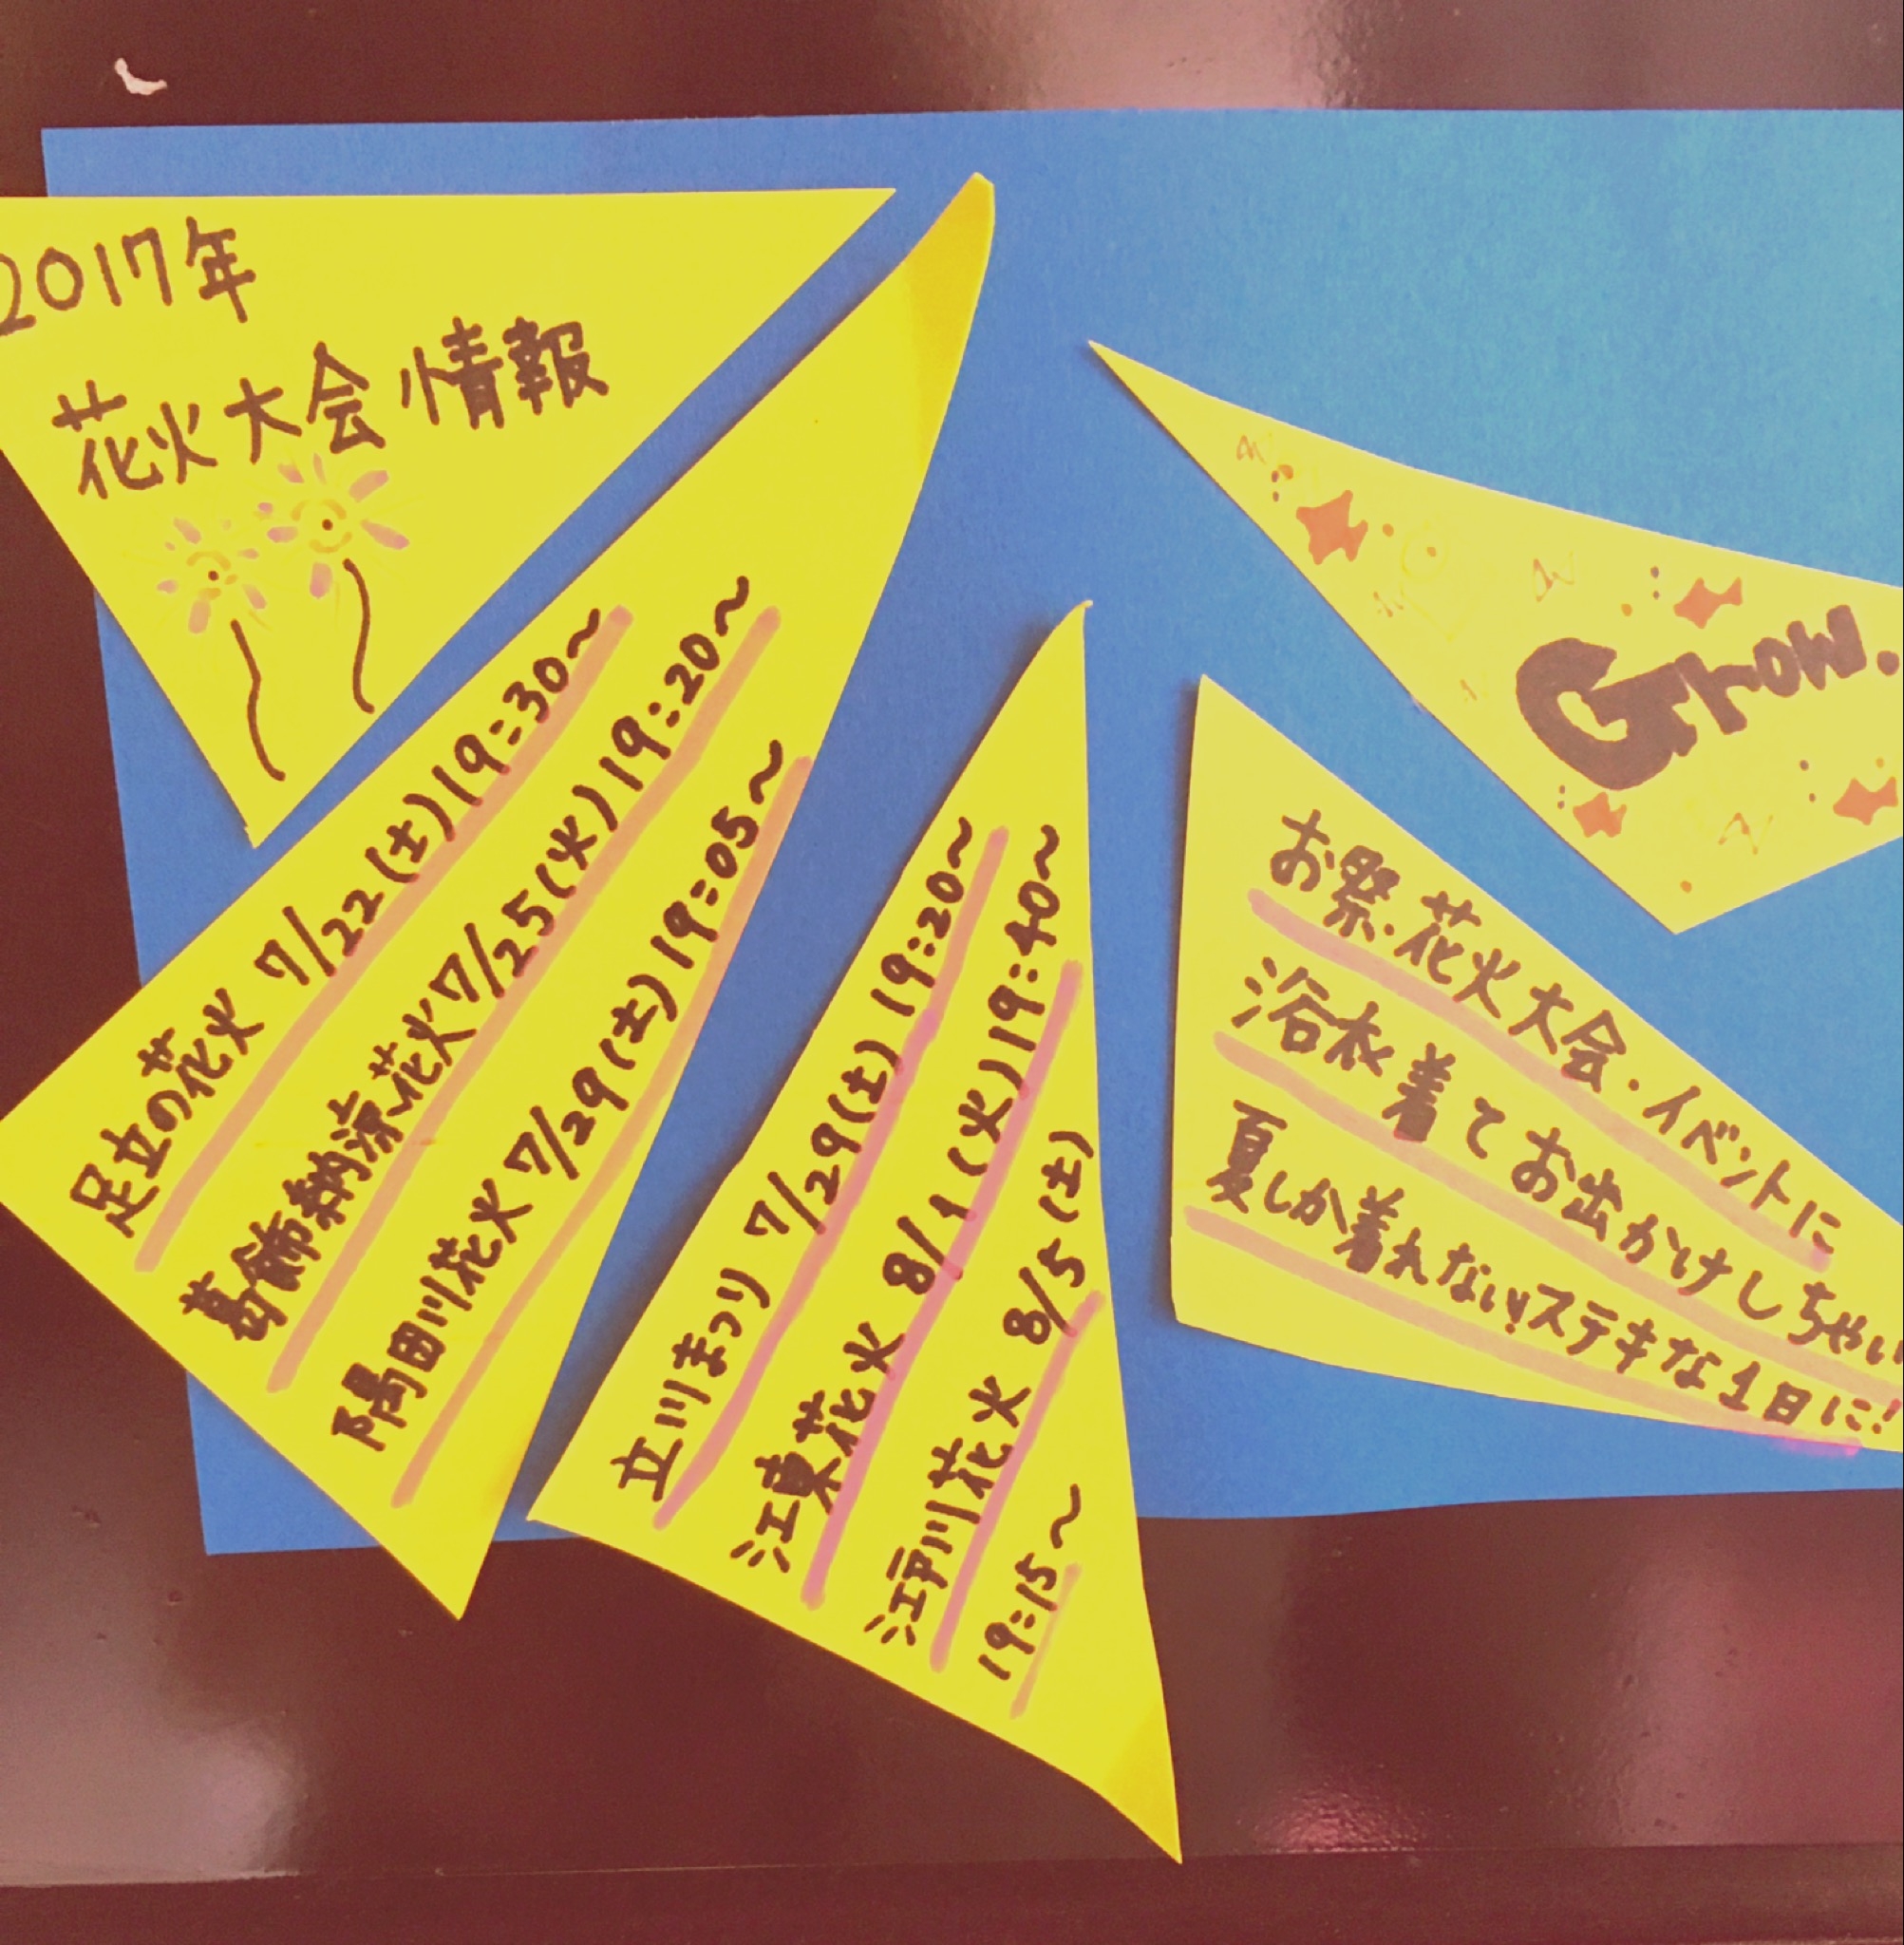 2017年
花火大会情報
足立の花火 7/22(土)19:30〜
葛飾納涼花火7/25(火)19:20〜
隅田川花火 7/29(土)19:05〜
立川まつり 7/29(土)19:20〜
江東花火 8/1(火)19:40〜
江戸川花火 8/5(土)
19:15〜
Grow.
お祭・花火大会・イベントに
浴衣着てお出かけしちゃい
夏しか着れない!ステキな1日に!